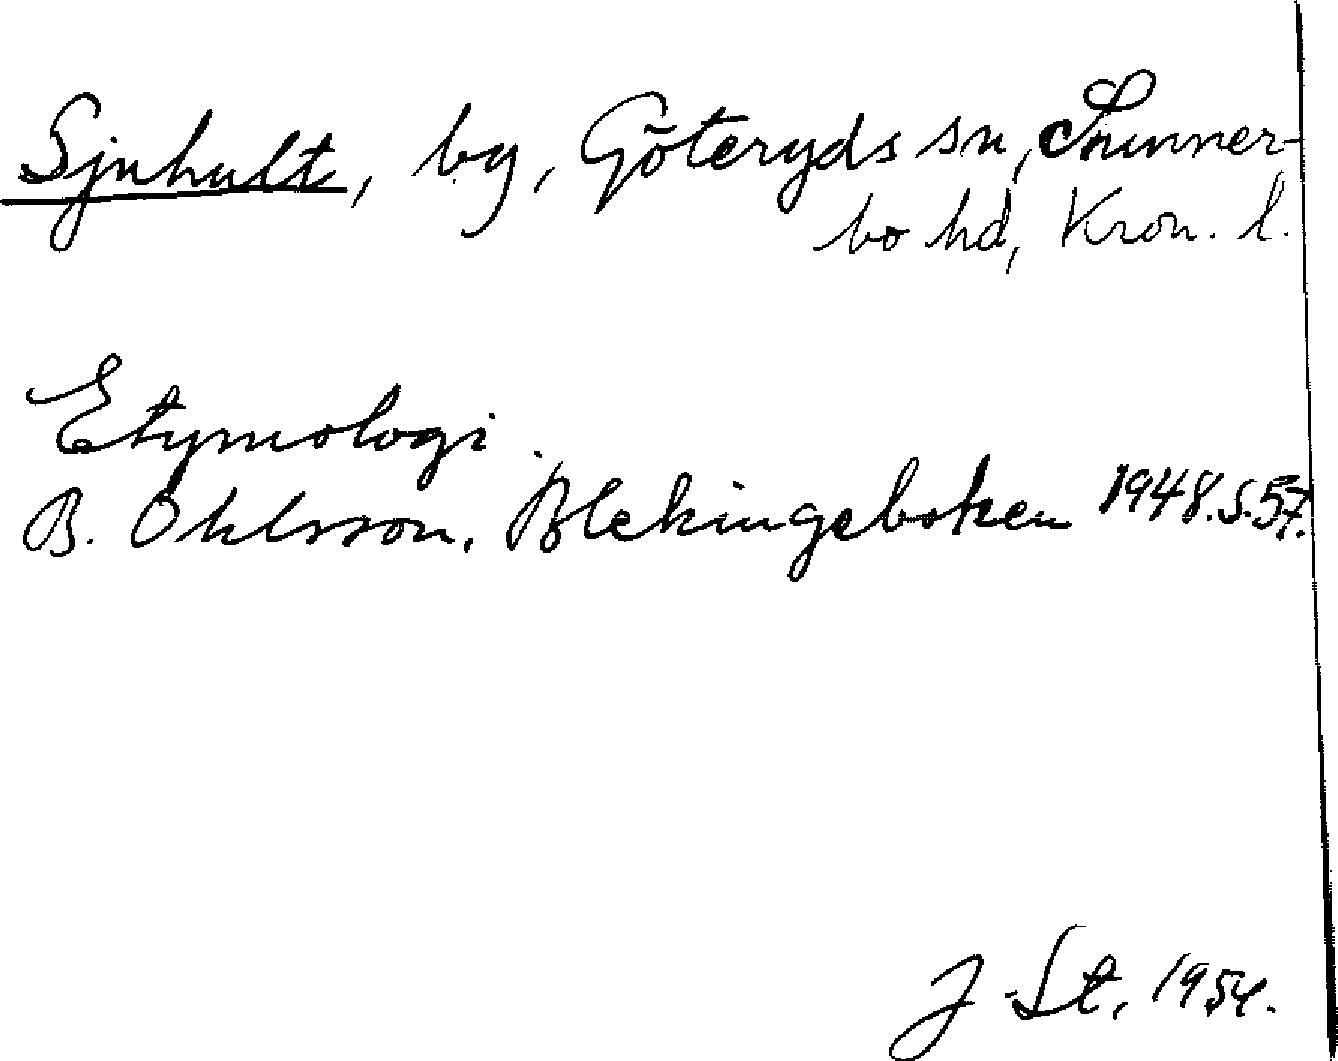 Sjuhult, by, Göteryds sn, Sunner-
bo hd, Kron. l.
Etymologi.
B. Ohlsson, Blekingeboken 1948. s. 57.
J. St. 1954.